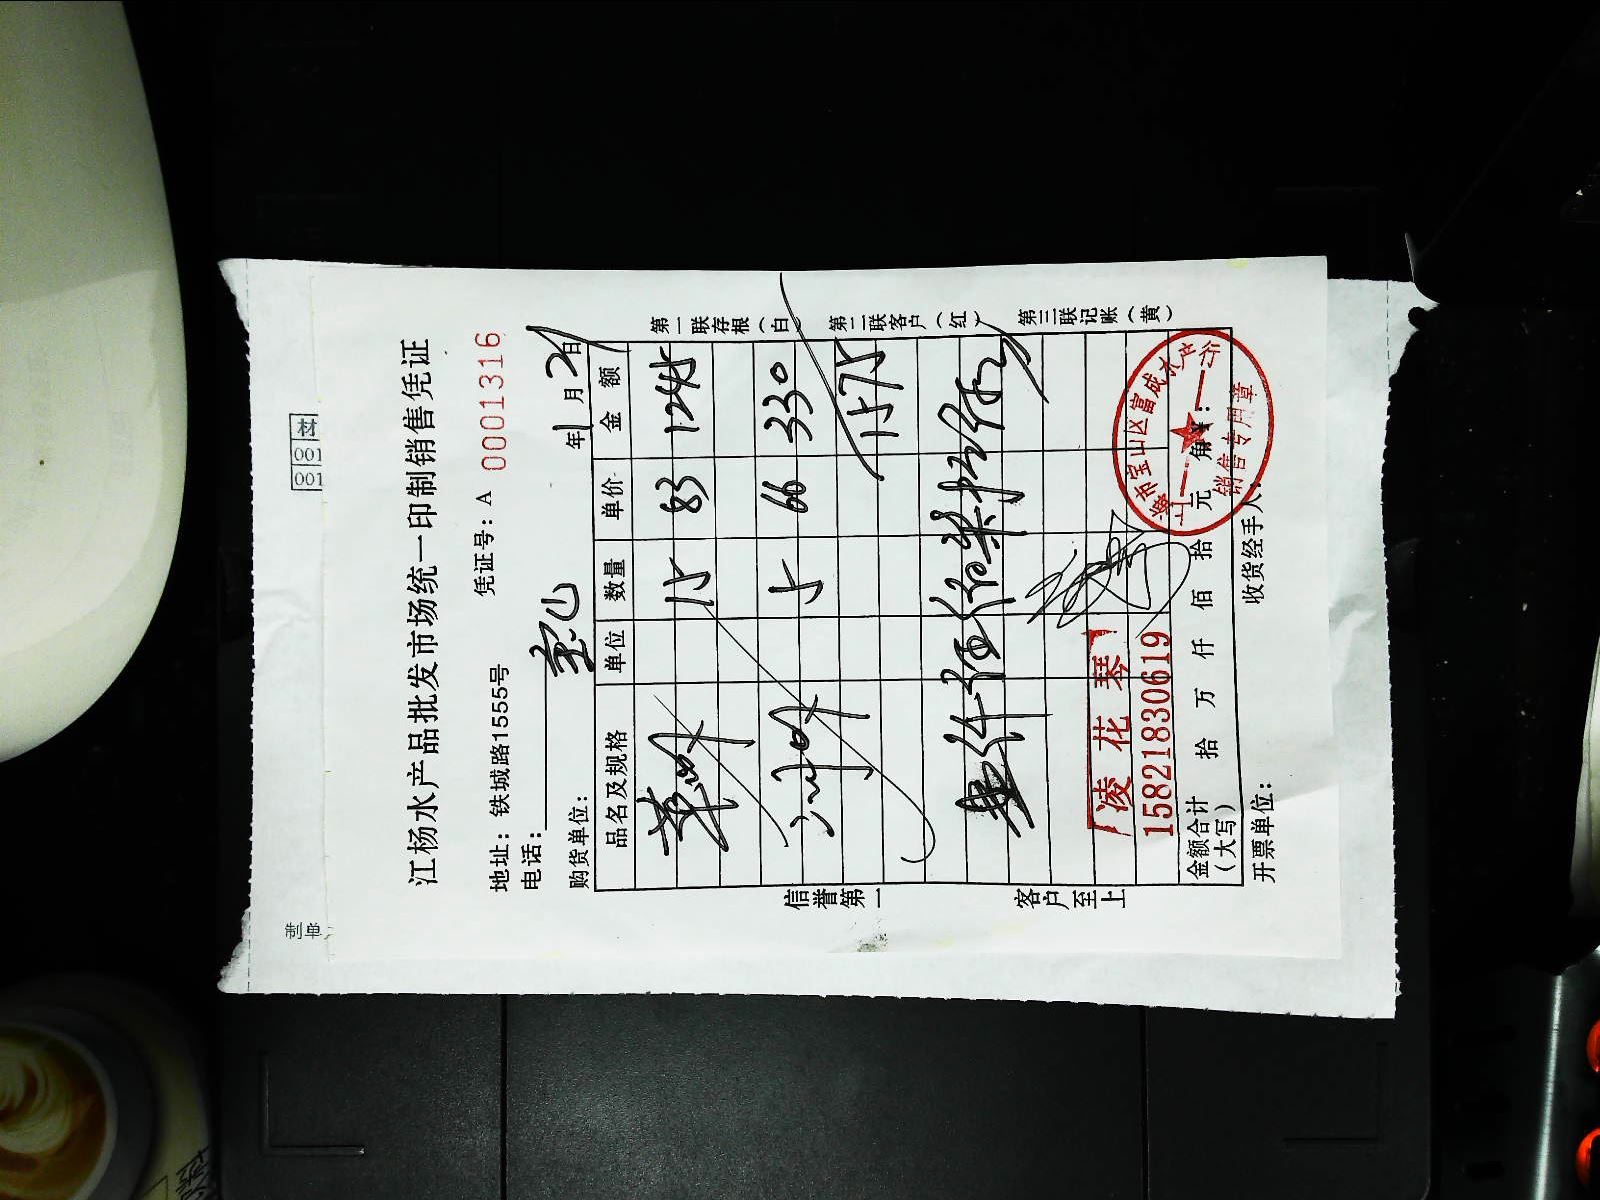 材
001
001
制单
江杨水产品批发市场统一印制销售凭证
地址：铁城路1555号 凭证号：A 0001316
电话：
购货单位： 年 1 月 29 日
品名及规格 单位 数量 单价 金额
15 83 1245
5 66 330
1575
壹仟伍佰柒拾伍元
凌花琴
15821830619
金额合计（大写） 拾 万 仟 佰 拾 元 角
开票单位： 收货经手人：
信誉第一 客户至上
第一联存根（白） 第二联客户（红） 第三联记账（黄）
上海市宝山区富成水产行
销售专用章